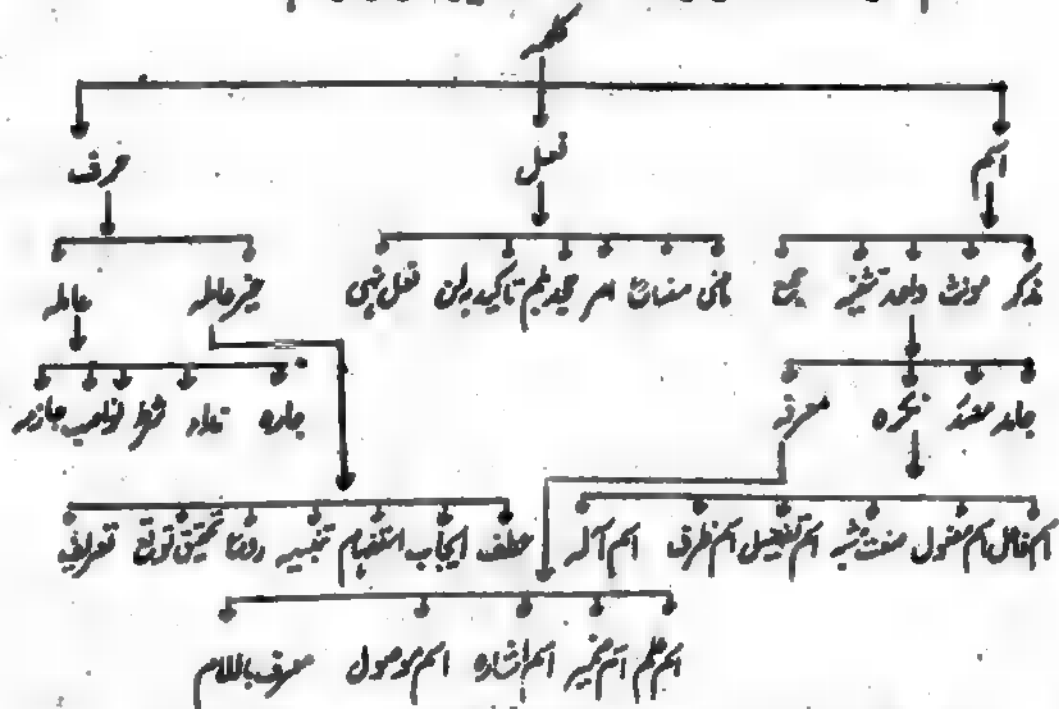 کلمہ
اسم فعل حرف
مذکر مونث واحد تثنیہ جمع ماضی مضارع امر جحد بلم تاکید بلن فعل نہی غیر عاملہ عاملہ
جامد معرفہ نکرہ جارہ نداء شرط نواصب جازمہ
اسم فاعل اسم مفعول صفت مشبہ اسم تفضیل اسم ظرف اسم آلہ عطف ایجاب استفہام تنبیہ تحقیق توقع تعریف
اسم علم اسم ضمیر اسم اشارہ اسم موصول معرف باللام